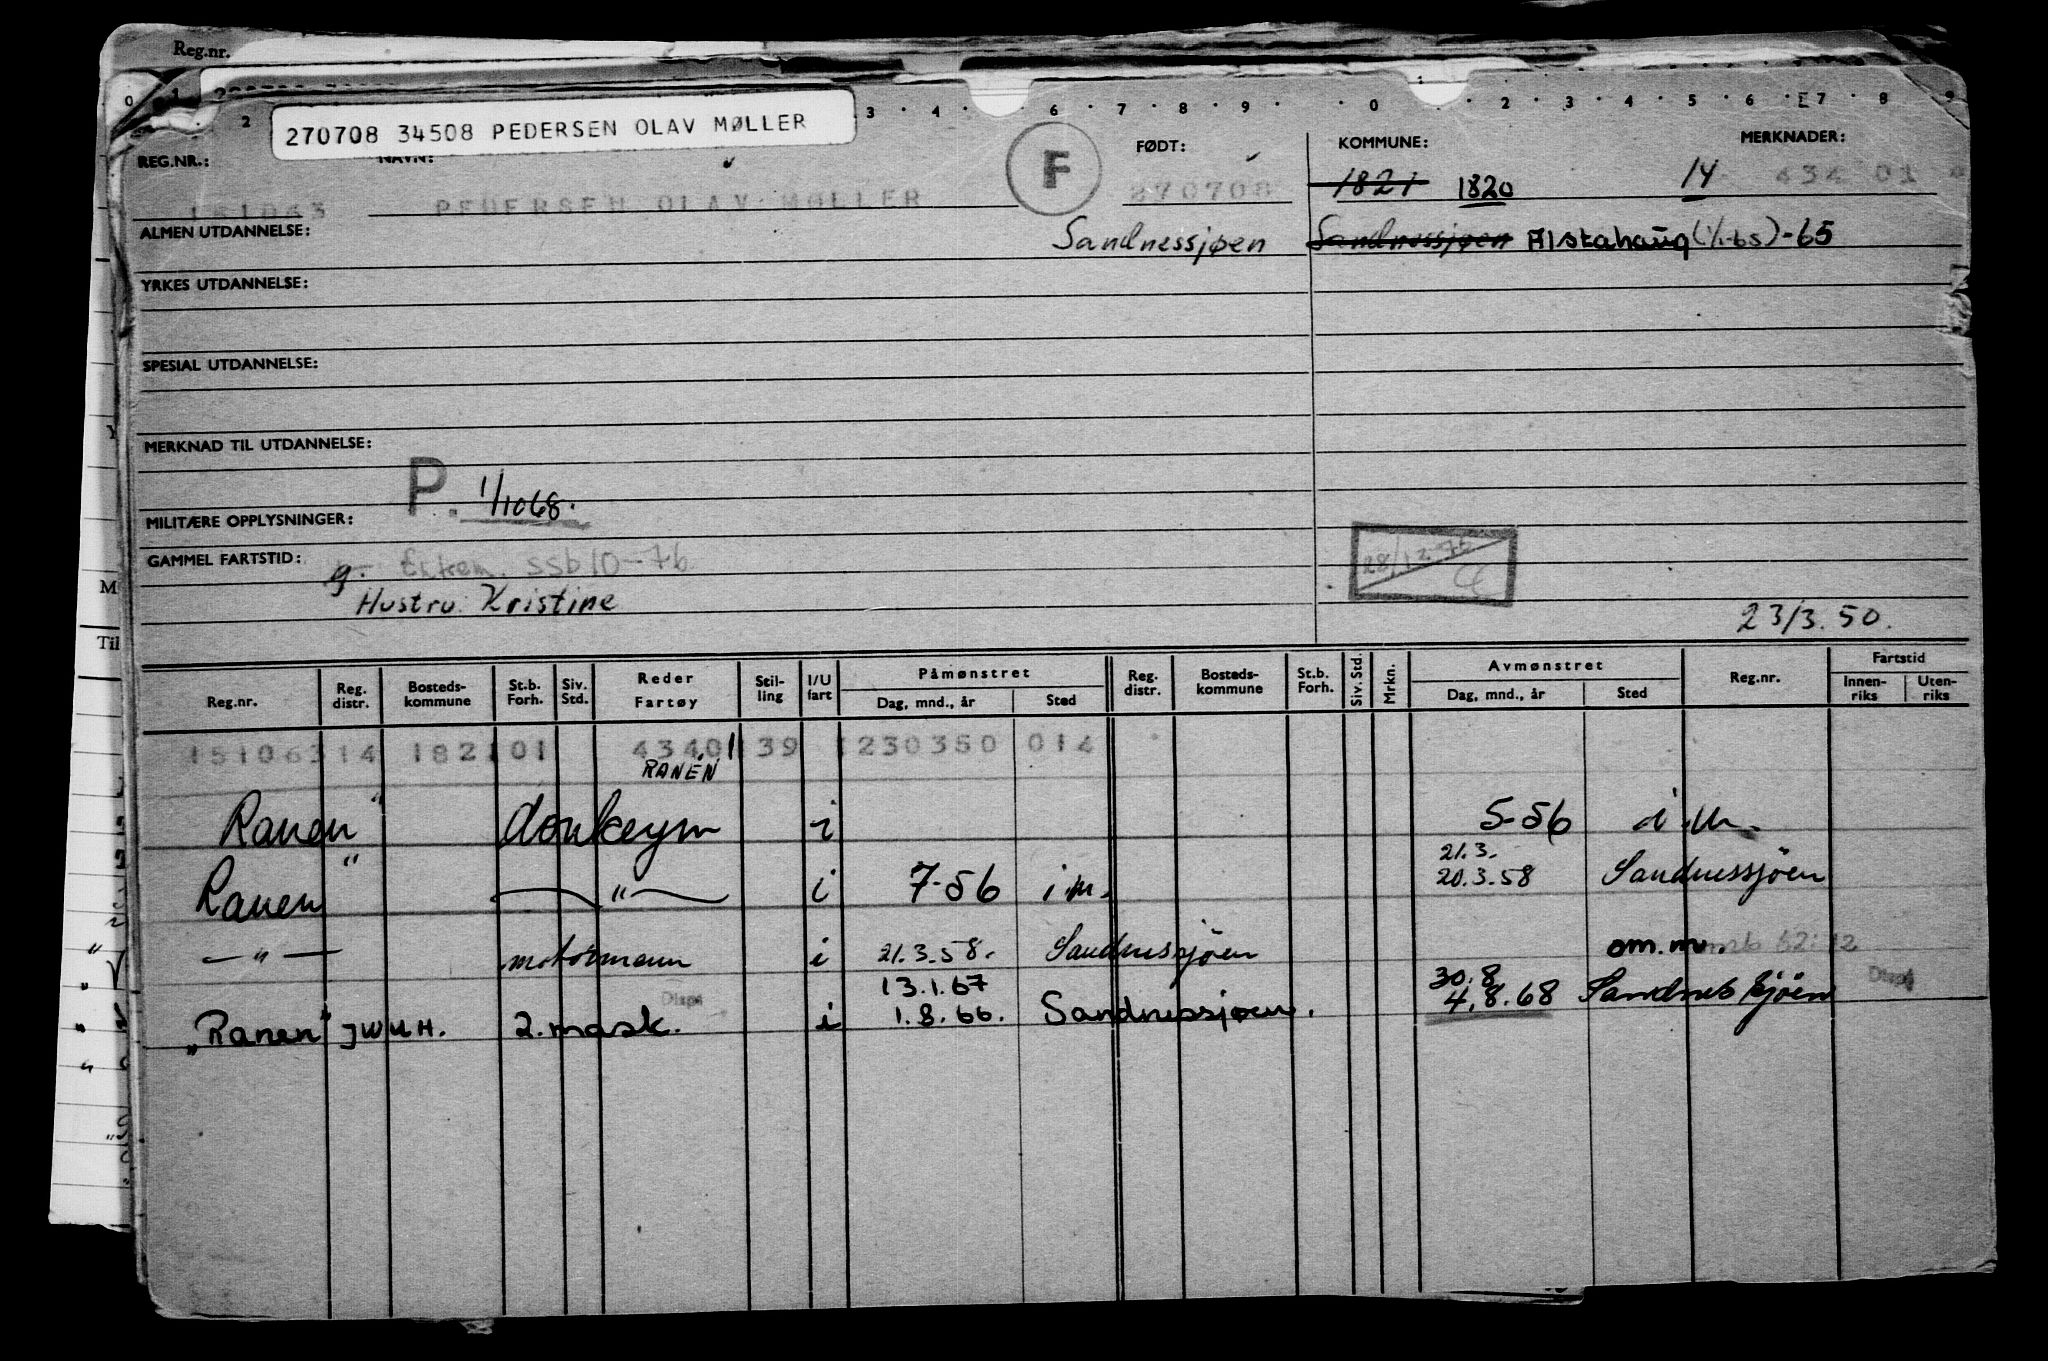 Reg.nr.
270708 34508 PEDERSEN OLAV MØLLER
2 3 4 6 7 8 9 0 2 3 4 5 6 7 8 9
REG.NR.: NAVN: F FØDT: KOMMUNE: MERKNADER:
151063 PEDERSEN OLAV MØLLER 270708 1821 1820 14 434 01
ALMEN UTDANNELSE: Sandnessjøen Sandnessjøen Alstahaug (1/1-65)-65
YRKES UTDANNELSE:
SPESIAL UTDANNELSE:
MERKNAD TIL UTDANNELSE:
P. 1/1068.
MILITÆRE OPPLYSNINGER:
GAMMEL FARTSTID: g. ssb 10-76
28/12-76
Hustru: Kristine
23/3.50.
M
Til
Reg.nr. Reg. distr. Bosteds-kommune St.b. Forh. Siv. Std. Reder Fartøy Stil-ling I/U fart Påmønstret Dag, mnd., år Sted Reg. distr. Bosteds-kommune St.b. Forh. Siv. Std. Mrkn. Avmønstret Dag, mnd., år Sted Reg.nr. Fartstid Innen-riks Uten-riks
151063 14 1821 01 43401 39 1 230350 014
RANEN
Ranen" donkeym i 5-56 i.m.
Ranen" — " — i 7-56 i.m. 21.3. 20.3.58 Sandnessjöen
— " — motormann i 21.3.58. Sandnessjöen om.m.
13.1.67 30.8
"Ranen" JWUH. 2. mask. i 1.8.66. Sandnessjøen. 4.8.68 Sandnessjöen